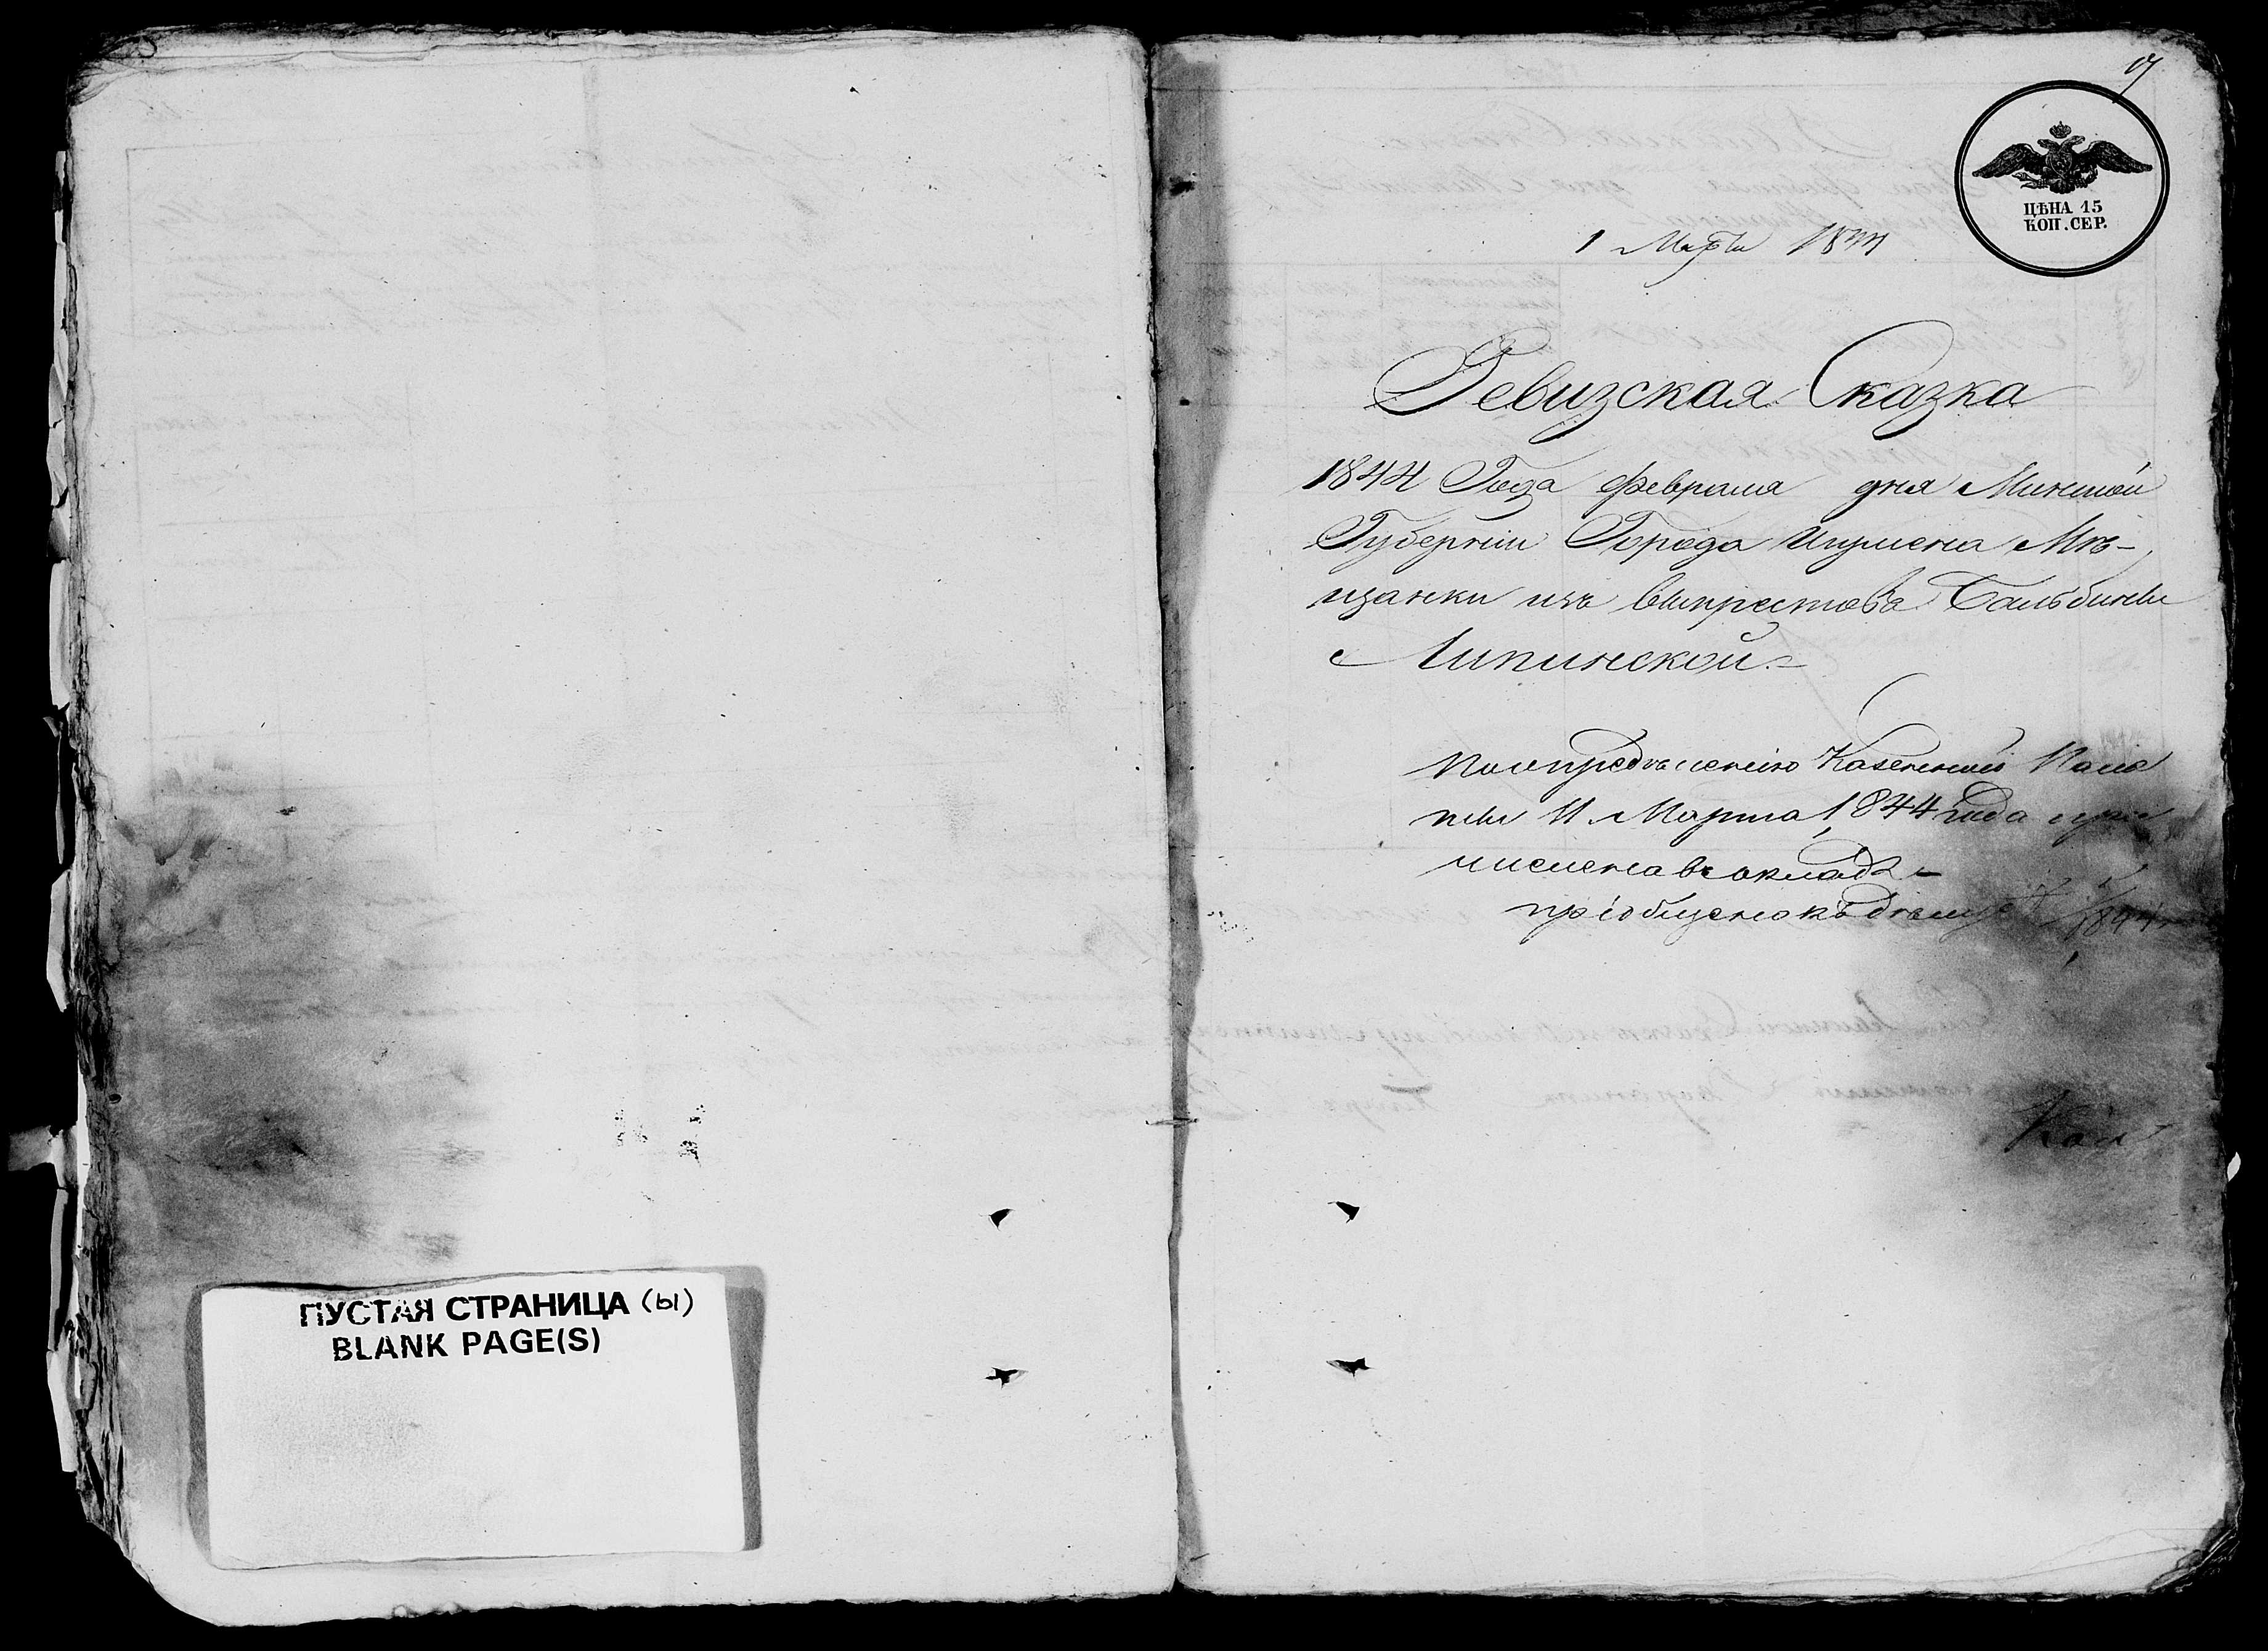 ПУСТАЯ СТРАНИЦА (ы)
BLANK PAGE(S)
ЦѢНА 15
КОП. СЕР.
1 Марта 1844
Ревизская Сказка
1844 Года февраля дня Минской
Губерніи Города Игумена Мѣ-
щанки изъ выкрестовъ Бальбины
Липинской.
По опредѣленію Казенной Пала
ты 11 Марта 1844 года при
числена въ окладъ
пріобщено къ дѣлу
1844